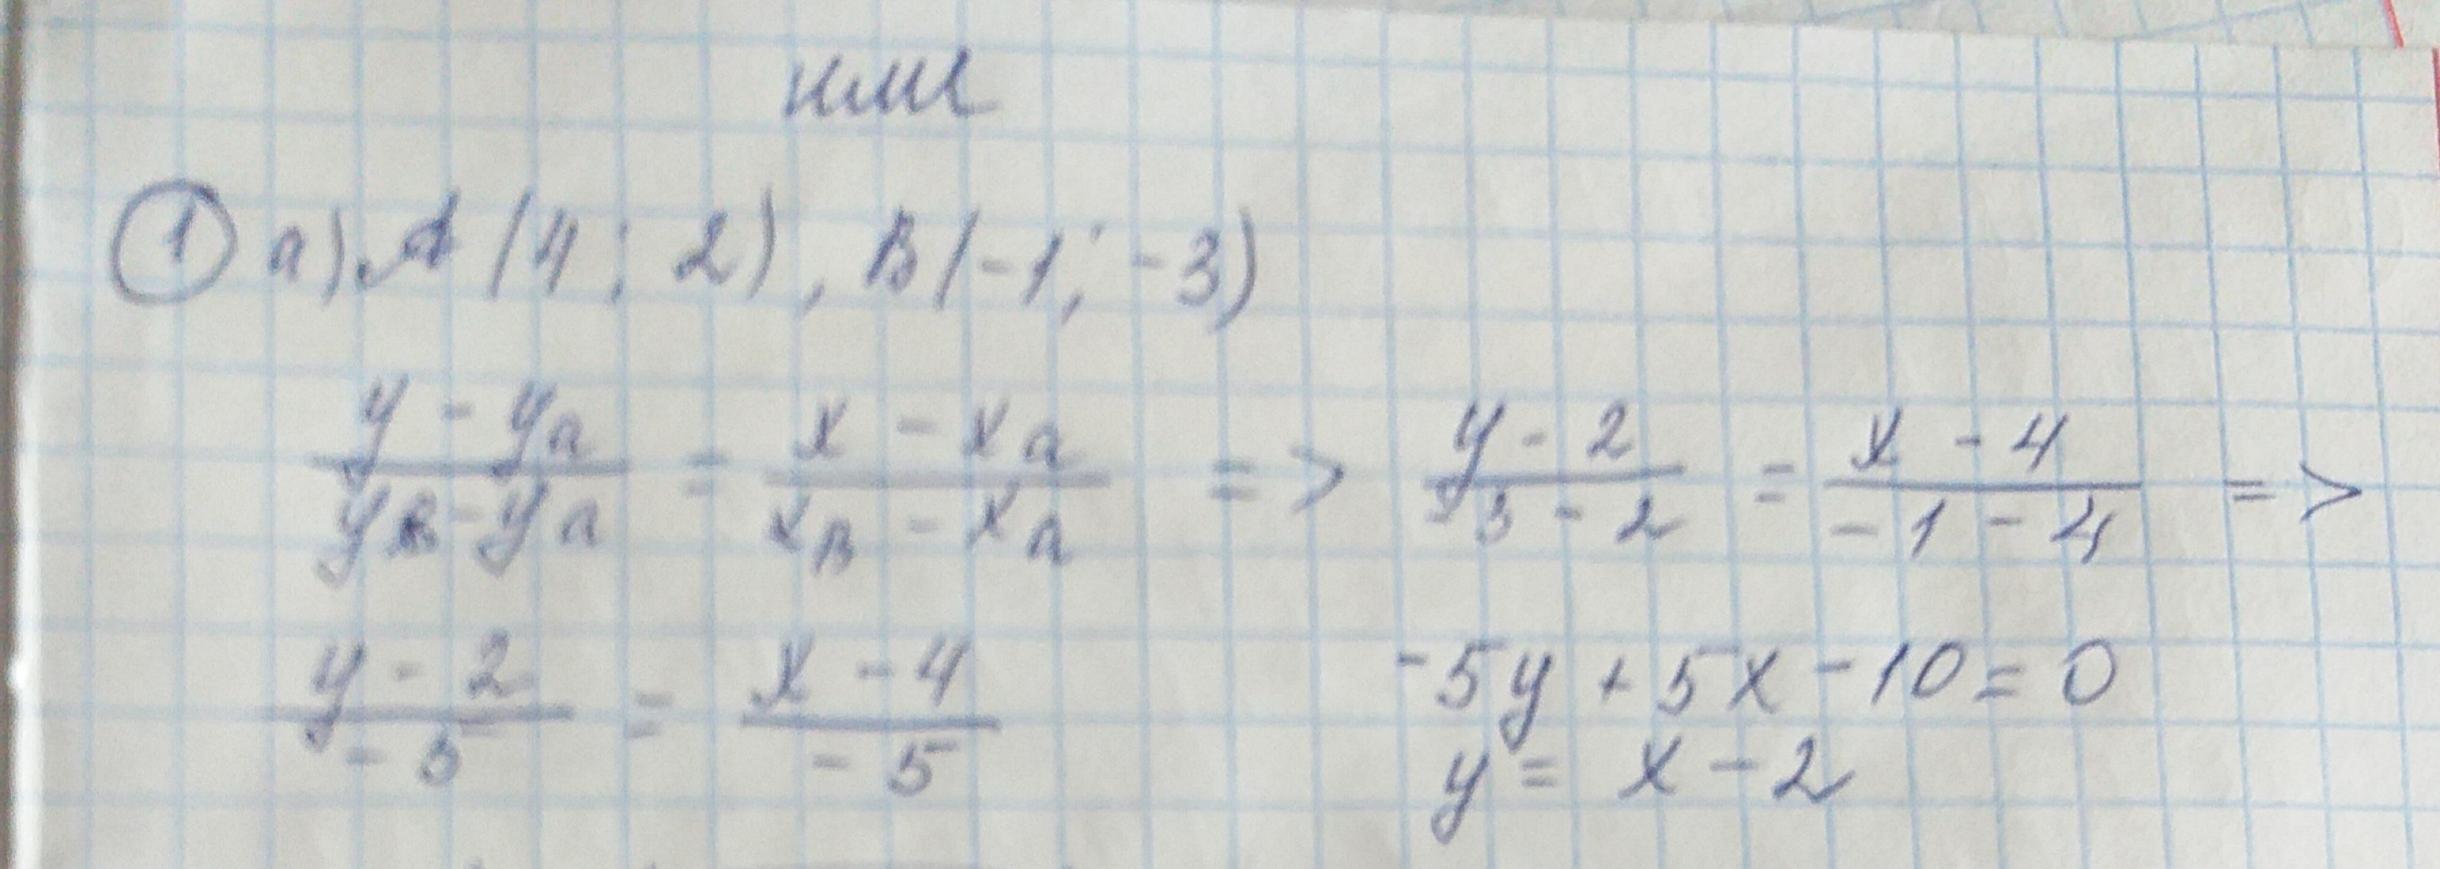 или
① а) A (4; 2), B(-1; -3)
(y - yа)/(yв - yа) = (x - xа)/(xв - xа) => (y - 2)/(-3 - 2) = (x - 4)/(-1 - 4) =>
(y - 2)/(-5) = (x - 4)/(-5) -5y + 5x - 10 = 0
y = x - 2